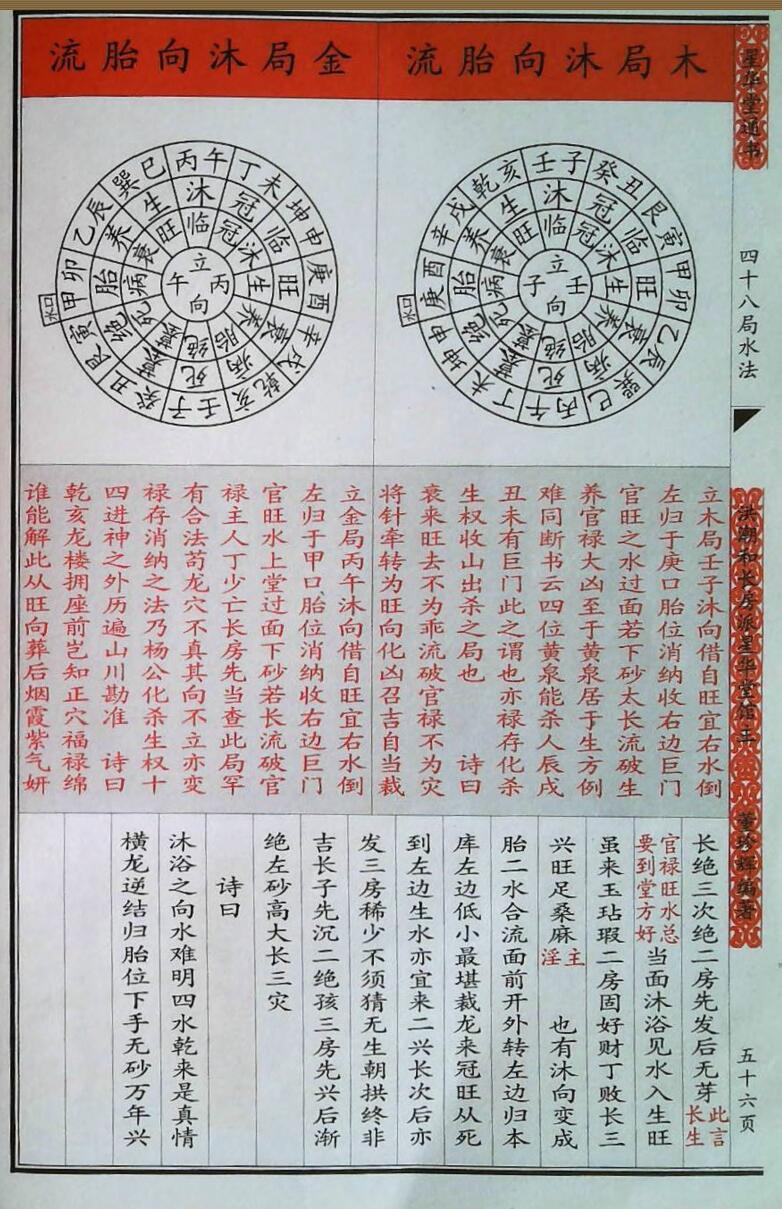 星华堂通书
四十八局水法
洪潮和长房派星华堂馆主
董珍辉编著
五十六页
木局沐向胎流
壬子 癸丑 艮寅 甲卯 乙辰 巽巳 丙午 丁未 坤申 庚酉 辛戌 乾亥
沐 冠 临 旺 衰 病 死 墓 绝 胎 养 生
临 冠 沐 生 养 胎 绝 墓 死 病 衰 旺
立壬子向
水口
金局沐向胎流
丙午 丁未 坤申 庚酉 辛戌 乾亥 壬子 癸丑 艮寅 甲卯 乙辰 巽巳
沐 冠 临 旺 衰 病 死 墓 绝 胎 养 生
临 冠 沐 生 养 胎 绝 墓 死 病 衰 旺
立丙午向
水口
立木局壬子沐向借自旺宜右水倒
左归于庚口胎位消纳收右边巨门
官旺之水过面若下砂太长流破生
养官禄大凶至于黄泉居于生方例
难同断书云四位黄泉能杀人辰戌
丑未有巨门此之谓也亦禄存化杀
生权收山出杀之局也 诗曰
衰来旺去不为乖流破官禄不为灾
将针牵转为旺向化凶召吉自当裁
立金局丙午沐向借自旺宜右水倒
左归于甲口胎位消纳收右边巨门
官旺水上堂过面下砂若长流破官
禄主人丁少亡长房先当查此局罕
有合法苟龙穴不真其向不立亦变
禄存消纳之法乃杨公化杀生权十
四进神之外历遍山川勘准 诗曰
乾亥龙楼拥座前岂知正穴福禄绵
谁能解此从旺向葬后烟霞紫气妍
长绝三次绝二房先发后无芽此言长生
官禄旺水总要到堂方好当面沐浴见水入生旺
虽来玉玷瑕二房固好财丁败长三
兴旺足桑麻主淫 也有沐向变成
胎二水合流面前开外转左边归本
库左边低小最堪裁龙来冠旺从死
到左边生水亦宜来二兴长次后亦
发三房稀少不须猜无生朝拱终非
吉长子先沉二绝孩三房先兴后渐
绝左砂高大长三灾
诗曰
沐浴之向水难明四水乾来是真情
横龙逆结归胎位下手无砂万年兴